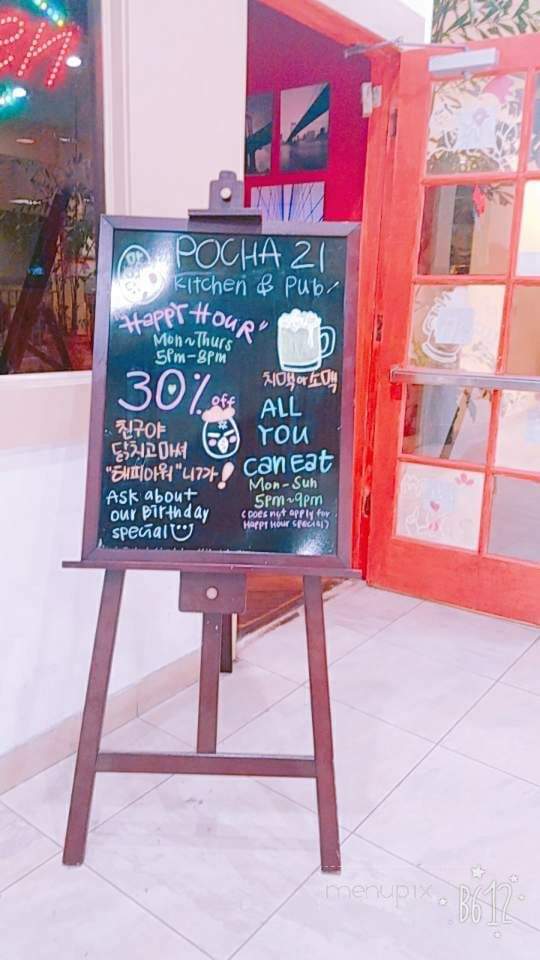 POCHA 21
Kitchen & Pub!
"HAPPY HOUR"
Mon~Thurs
5pm-8pm
30% off
친구야
닭치고 마셔
"해피아워"니까!
Ask about
our Birthday
special
치맥 아 소맥
ALL
YOU
Can Eat
Mon-Sun
5pm~9pm
(Does not apply for
Happy Hour special)
menupix
B612